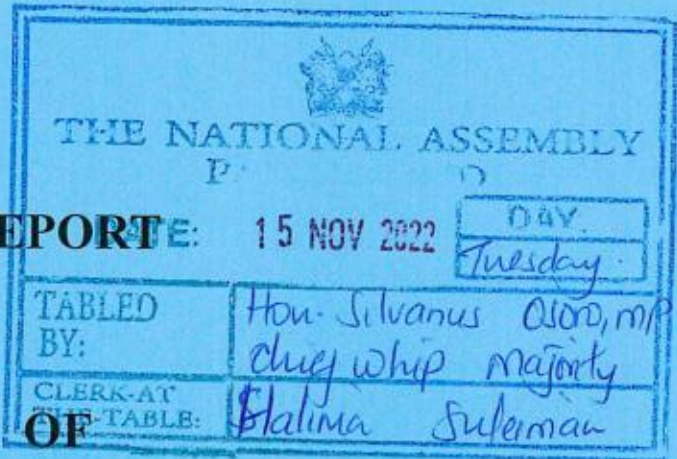 THE NATIONAL ASSEMBLY
DATE: 15 NOV 2022 DAY.
EPORT
Tuesday.
TABLED BY: Hon. Silvanus Osoro, MP
chief whip majority
CLERK-AT THE-TABLE: Halima Suleiman
OF